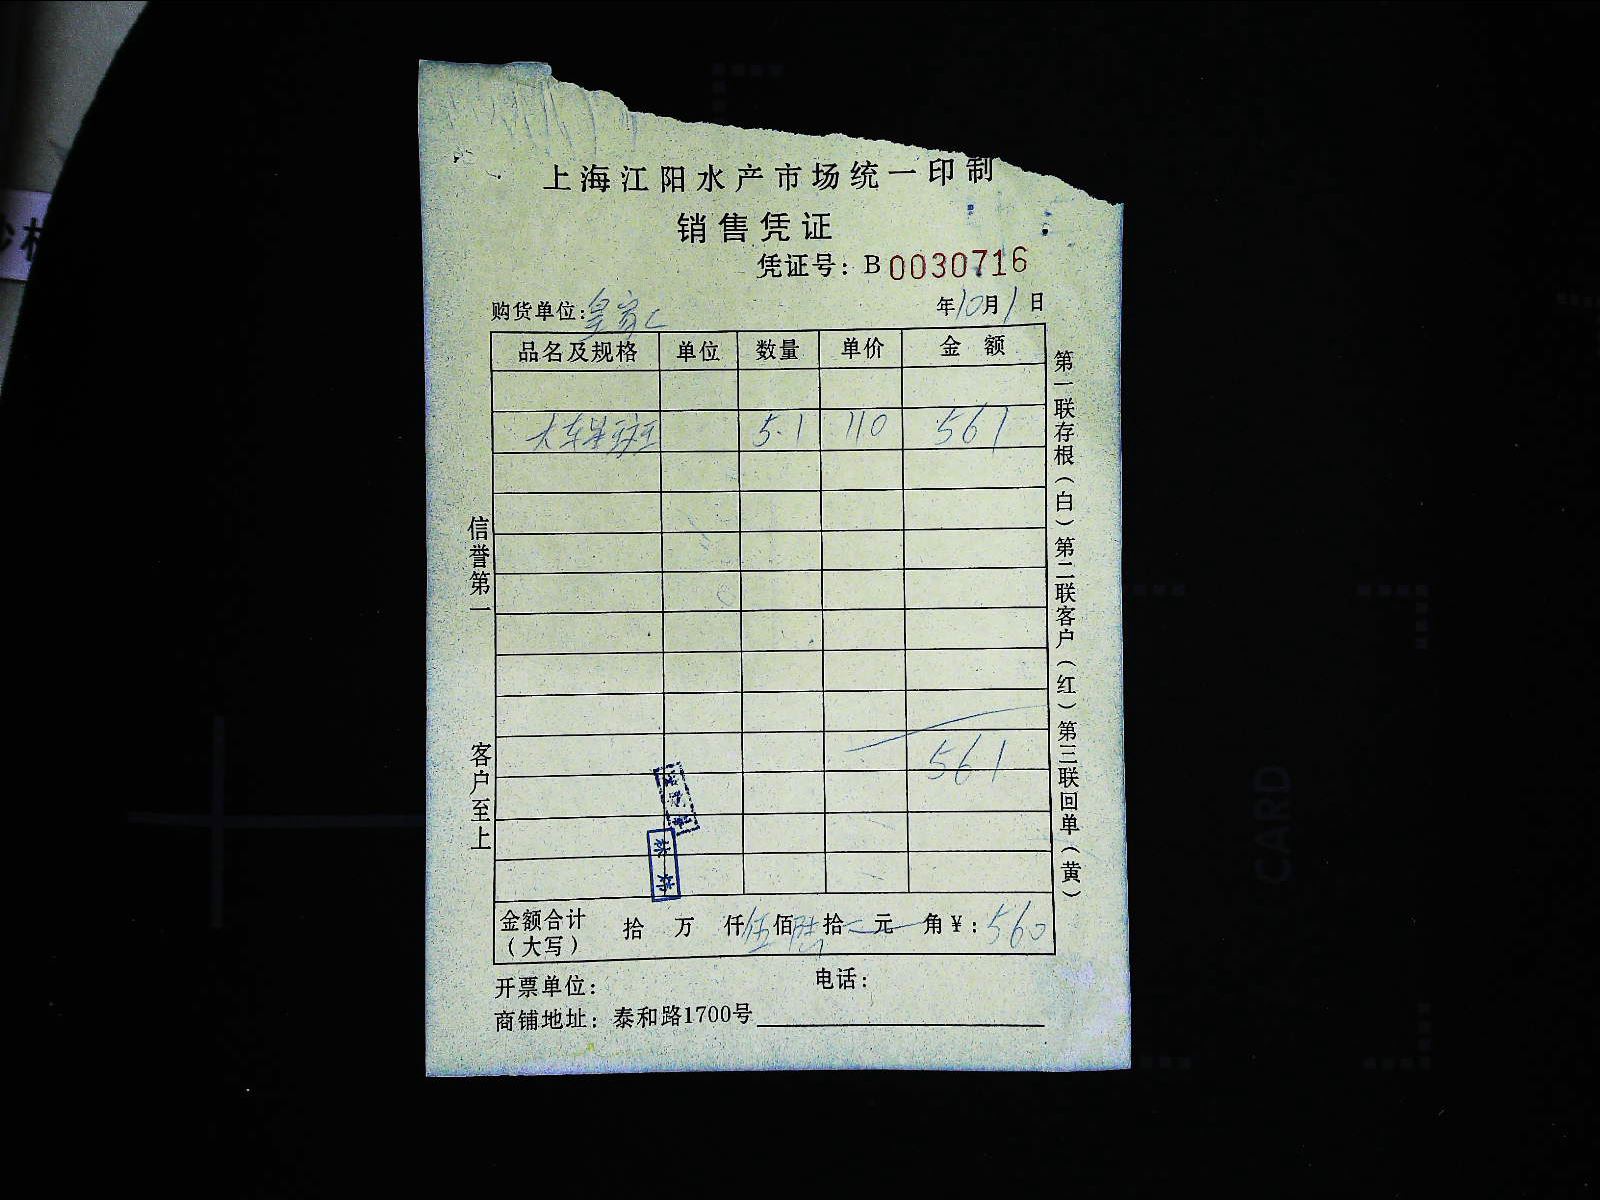 上海江阳水产市场统一印制
销售凭证
凭证号：B0030716
购货单位：皇家 年10月1日
品名及规格 单位 数量 单价 金额
大东星斑 5.1 110 561
561
金额合计（大写） 拾 万 仟伍佰陆拾 元 角￥：560
开票单位： 电话：
商铺地址：泰和路1700号
信誉第一
客户至上
第一联存根（白）第二联客户（红）第三联回单（黄）
CARD